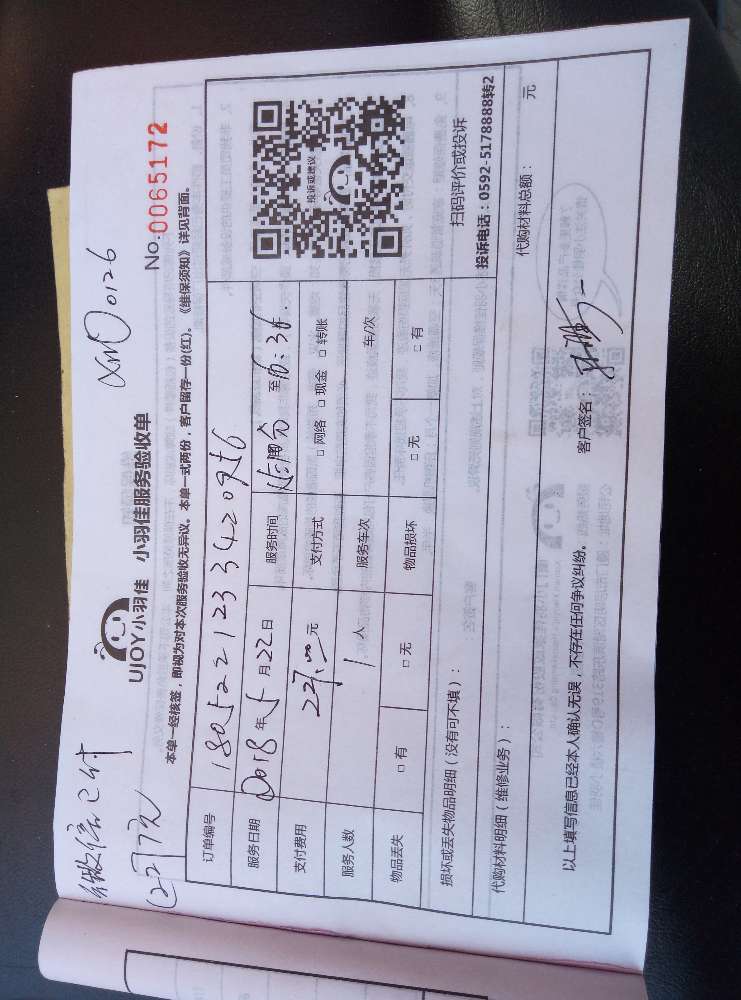 微信已付
227元
XMO0126
No.0065172
UJOY小羽佳 小羽佳服务验收单
本单一经核签，即视为对本次服务验收无异议。本单一式两份，客户留存一份(红)。《维保须知》详见背面。
订单编号
服务日期 2018年5月22日 服务时间 至16:30
支付费用 227.00元 支付方式 □网络 □现金 □转账
服务人数 1人 服务车次 车/次
物品丢失 □有 □无 物品损坏 □无 □有
投诉或建议
扫码评价或投诉
投诉电话：0592-5178888转2
损坏或丢失物品明细（没有可不填）：
代购材料明细（维修业务）： 代购材料总额： 元
以上填写信息已经本人确认无误，不存在任何争议纠纷。 客户签名：